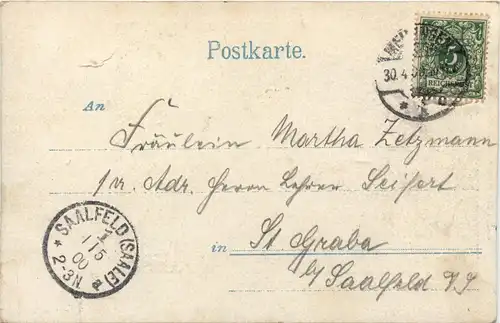 Postkarte.
5
REICHSPOST
30.4.
An
Fräulein Martha Zetzmann
p. Adr. Herrn Lehrer Seifert
in St. Graba
b/ Saalfeld
SAALFELD (SAALE)
1/5
00
* 2-3N